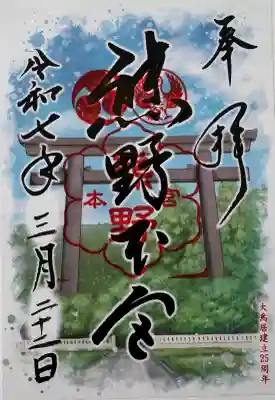 奉拝
熊野本宮
令和七年 三月二十二日
大鳥居建立25周年